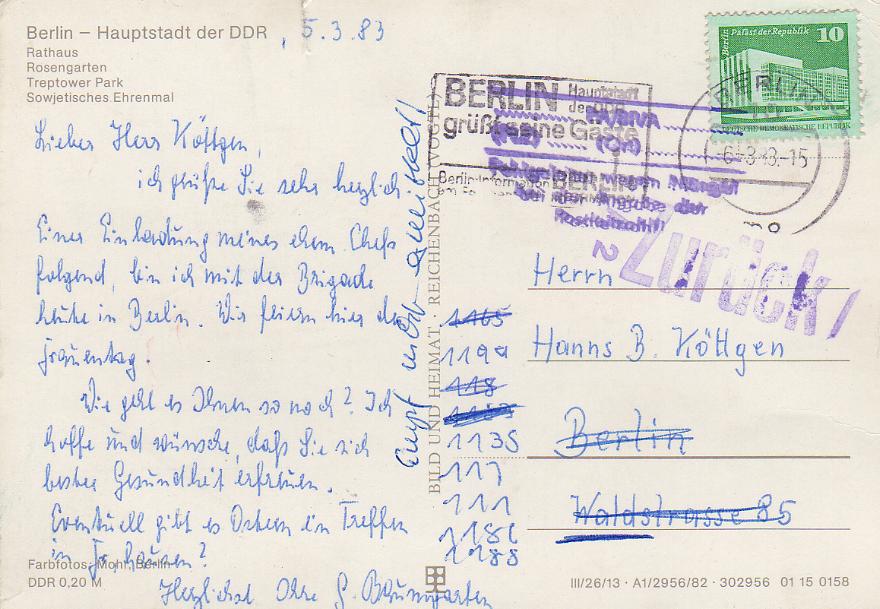 Berlin – Hauptstadt der DDR
Rathaus
Rosengarten
Treptower Park
Sowjetisches Ehrenmal
, 5.3.83
Lieber Herr Köttgen,
ich grüße Sie sehr herzlich.
Einer Einladung meines ehem Chefs
folgend, bin ich mit der Brigade
heute in Berlin. Wir feiern hier den
Frauentag.
Wie geht es Ihnen so noch? Ich
hoffe und wünsche, daß Sie sich
bester Gesundheit erfreuen.
Eventuell gibt es Ostern ein Treffen
in
Herzlichst Ihre G. Baumgarten
Farbfotos: Mohr, Berlin
DDR 0,20 M
Empf nicht ermittelt!
BILD UND HEIMAT · REICHENBACH VOGTL
BERLIN Hauptstadt
der DDR
grüßt seine Gäste
Berlin-Information BERLIN
Berlin Palast der Republik 10
DEUTSCHE DEMOKRATISCHE REPUBLIK
BERLIN
-6.-3.83.-15
wegen Mangel
bei der Angabe der
Postleitzahl!
Zurück!
2
1165
1199
118
1135
117
111
1186
1188
Herrn
Hanns B. Köttgen
Berlin
Waldstrasse 85
III/26/13 · A1/2956/82 · 302956 01 15 0158